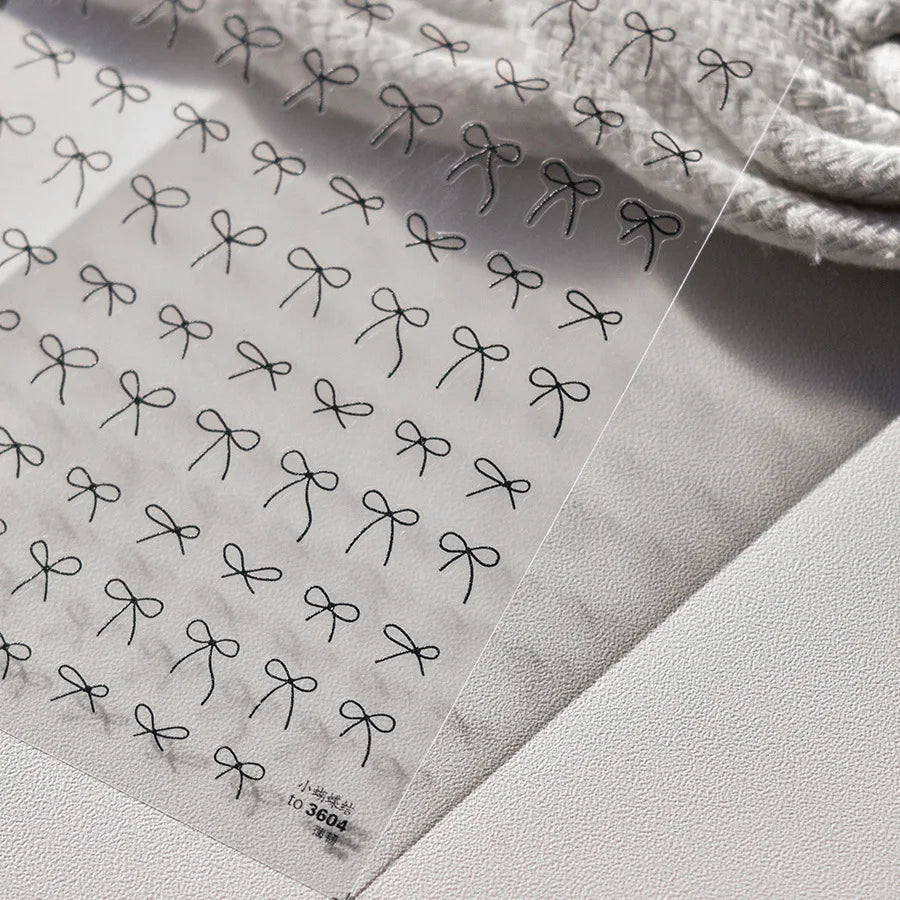 小蝴蝶结
to 3604
薄砖